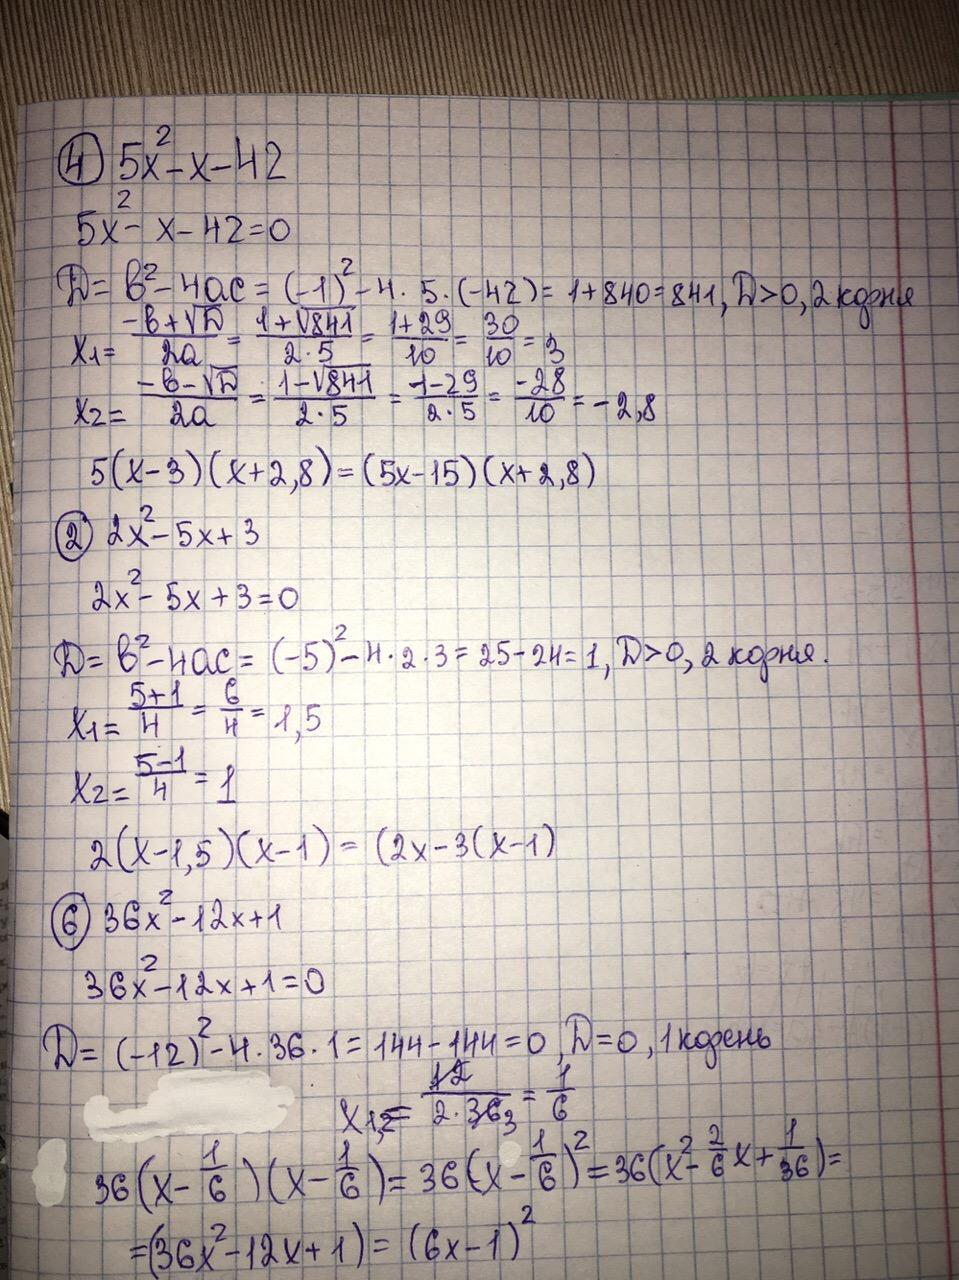 ④ 5x² - x - 42
5x² - x - 42 = 0
D = b² - 4ac = (-1)² - 4 · 5 · (-42) = 1 + 840 = 841, D > 0, 2 корня
x₁ = (-b + √D)/(2a) = (1 + √841)/(2 · 5) = (1 + 29)/10 = 30/10 = 3
x₂ = (-b - √D)/(2a) = (1 - √841)/(2 · 5) = (1 - 29)/(2 · 5) = (-28)/10 = -2,8
5(x - 3)(x + 2,8) = (5x - 15)(x + 2,8)
② 2x² - 5x + 3
2x² - 5x + 3 = 0
D = b² - 4ac = (-5)² - 4 · 2 · 3 = 25 - 24 = 1, D > 0, 2 корня.
x₁ = (5+1)/4 = 6/4 = 1,5
x₂ = (5-1)/4 = 1
2(x - 1,5)(x - 1) = (2x - 3(x - 1)
⑥ 36x² - 12x + 1
36x² - 12x + 1 = 0
D = (-12)² - 4 · 36 · 1 = 144 - 144 = 0, D = 0, 1 корень
x₁,₂ = 12/(2 · 36₃) = 1/6
36(x - 1/6)(x - 1/6) = 36(x - 1/6)² = 36(x² - 2/6 x + 1/36) =
= (36x² - 12x + 1) = (6x - 1)²